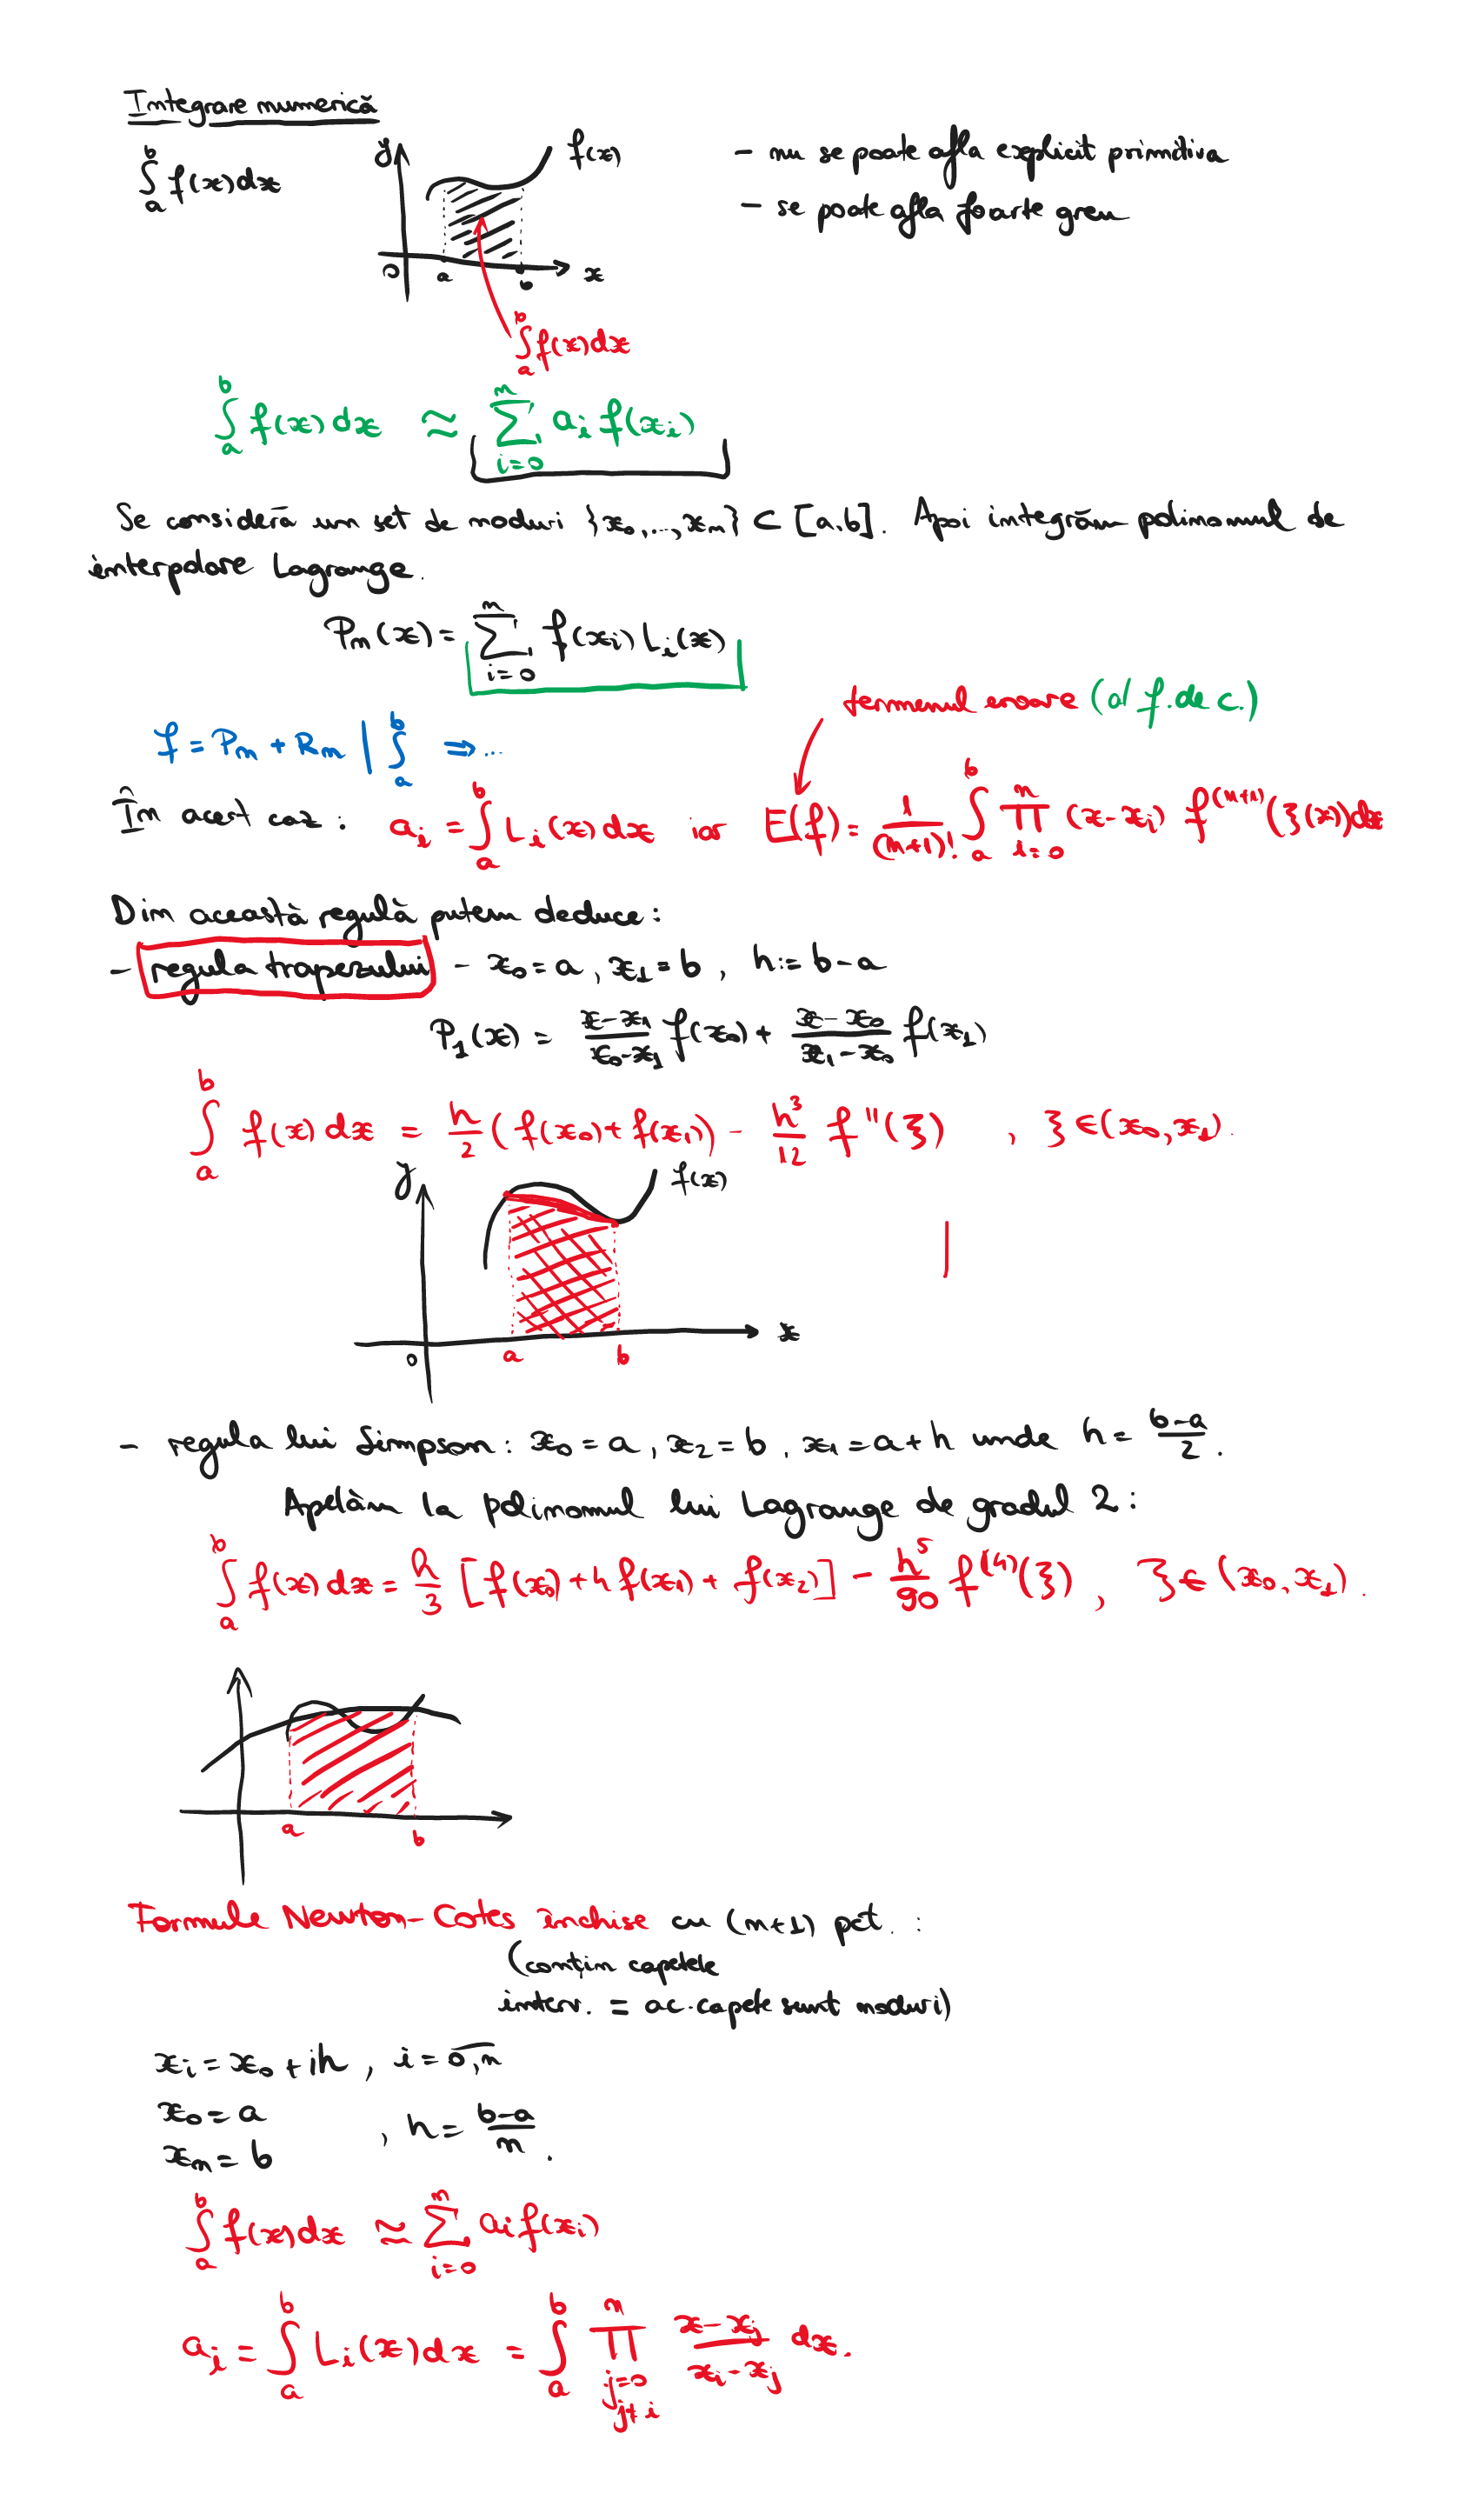 Integrare numerică
∫_a^b f(x)dx
y
f(x)
- nu se poate afla explicit primitiva
- se poate afla foarte greu
0 a b x
∫_a^b f(x)dx
∫_a^b f(x)dx ≈ ∑_{i=0}^n a_i f(x_i)
Se consideră un set de noduri {x_0,...,x_n} ⊂ [a,b]. Apoi integrăm polinomul de
interpolare Lagrange.
P_n(x) = ∑_{i=0}^n f(x_i) L_i(x)
termenul eroare (al f. de c.)
f = P_n + R_n | ∫_a^b ⇒...
În acest caz: a_i = ∫_a^b L_i(x)dx iar E(f) = 1/(n+1)! ∫_a^b ∏_{i=0}^n (x-x_i) f^{(n+1)}(ξ(x))dx
Din această regulă putem deduce:
- regula trapezului - x_0 = a, x_1 = b, h := b-a
P_1(x) = (x-x_1)/(x_0-x_1) f(x_0) + (x-x_0)/(x_1-x_0) f(x_1)
∫_a^b f(x)dx = h/2 (f(x_0) + f(x_1)) - h^3/12 f''(ξ), ξ ∈ (x_0,x_1).
y
f(x)
0 a b x
- regula lui Simpson: x_0 = a, x_2 = b, x_1 = a+h unde h = (b-a)/2.
Apelăm la polinomul lui Lagrange de gradul 2:
∫_a^b f(x)dx = h/3 [f(x_0) + 4f(x_1) + f(x_2)] - h^5/90 f^{(4)}(ξ), ξ ∈ (x_0,x_1).
a b
Formule Newton-Cotes închise cu (n+1) pct.:
(conțin capetele
interv. = ac. capete sunt noduri)
x_i = x_0 + ih, i = \overline{0,n}
x_0 = a
, h = (b-a)/n.
x_n = b
∫_a^b f(x)dx ≈ ∑_{i=0}^n a_i f(x_i)
a_i = ∫_a^b L_i(x)dx = ∫_a^b ∏_{j=0, j≠i}^n (x-x_j)/(x_i-x_j) dx.